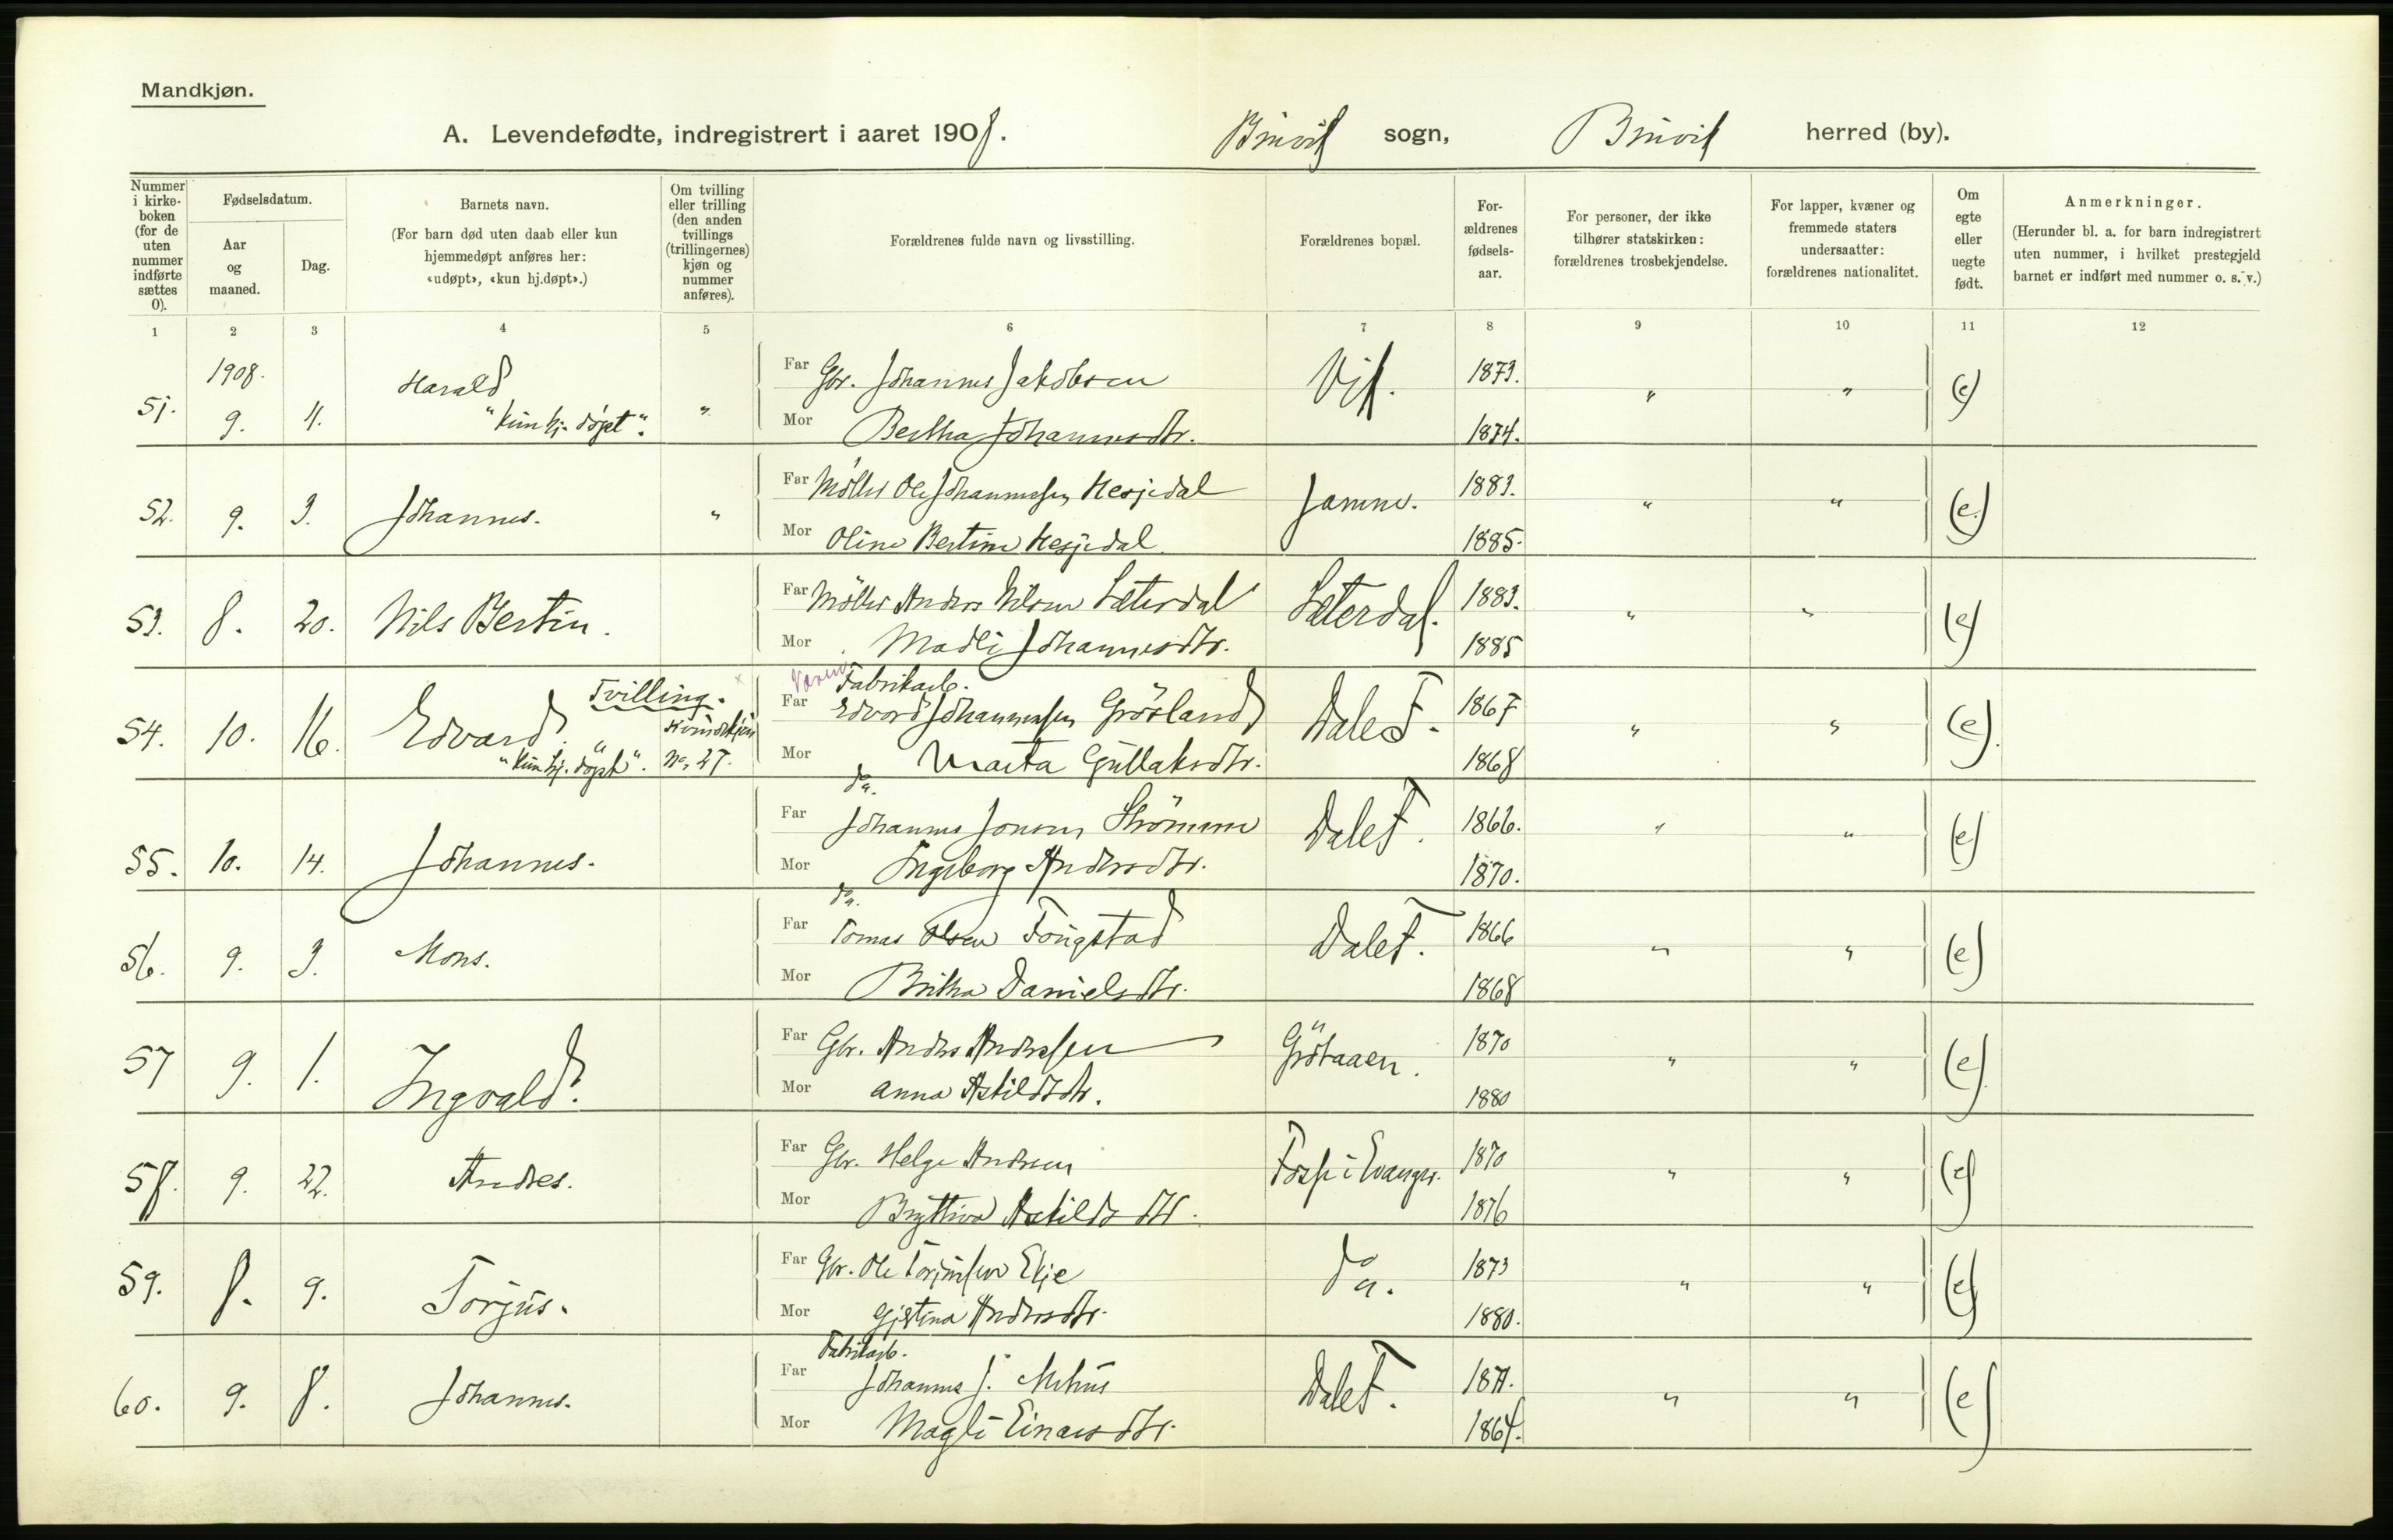 Mandkjøn.
A. Levendefødte, indregistrert i aaret 1908. Bruvik sogn, Bruvik herred (by).
Nummer i kirkeboken (for de uten nummer indførte sættes 0).
Fødselsdatum.
Aar og maaned.
Dag.
Barnets navn.
(For barn død uten daab eller kun hjemmedøpt anføres her: «udøpt», «kun hj.døpt».)
Om tvilling eller trilling (den anden tvillings (trillingernes) kjøn og nummer anføres).
Forældrenes fulde navn og livsstilling.
Forældrenes bopæl.
Forældrenes fødselsaar.
For personer, der ikke tilhører statskirken: forældrenes trosbekjendelse.
For lapper, kvæner og fremmede staters undersaatter: forældrenes nationalitet.
Om egte eller uegte født.
Anmerkninger.
(Herunder bl. a. for barn indregistrert uten nummer, i hvilket prestegjeld barnet er indført med nummer o. s. v.)
1 2 3 4 5 6 7 8 9 10 11 12
1908.
51. 9. 11. Harald "kun hj. døpt". " Far Gbr. Johannes Jakobsen Vik. 1873. " " (e)
Mor Bertha Johannesdtr. 1874.
52. 9. 3. Johannes. " Far Møller Ole Johannessen Hesjedal Jamne. 1883. " " (e)
Mor Oline Bertine Hesjedal 1885.
53. 8. 20. Nils Bertin. Far Møller Anders Nilsen Sæterdal Sæterdal. 1883. " " (e)
Mor Madli Johannesdtr. 1885
54. 10. 16. Edvard. Tvilling. "kun hj. døpt". Kvindekjøn No. 27. Far Fabrikarb. Edvard Johannessen Grøsland Dale F. 1867 " " (e).
Mor Marta Gullaksdtr. 1868
55. 10. 14. Johannes. Far do. Johannes Jonsen Strømme Dale F. 1866. " " (e)
Mor Ingeborg Andersdtr. 1870.
56. 9. 3. Mons. Far do. Tomas Olsen Fougstad Dale F. 1866 " " (e)
Mor Britha Danielsdtr. 1868
57 9. 1. Ingvald. Far Gbr. Anders Anderssen Grøtaaen. 1870 " " (e).
Mor Anna Askildsdtr. 1880
58. 9. 22. Andres. Far Gbr. Helge Andersen Fosse i Evanger. 1870 " " (e)
Mor Bryttiva Askildsdtr. 1876
59. 8. 9. Torjus. Far Gbr. Ole Torjussen Ekje do. 1873 " " (e)
Mor Gjertina Andersdtr. 1880.
60. 9. 8. Johannes. Far Fabrikarb. Johannes J. Mehus Dale F. 1871. " " (e)
Mor Magli Einarsdtr. 1864.